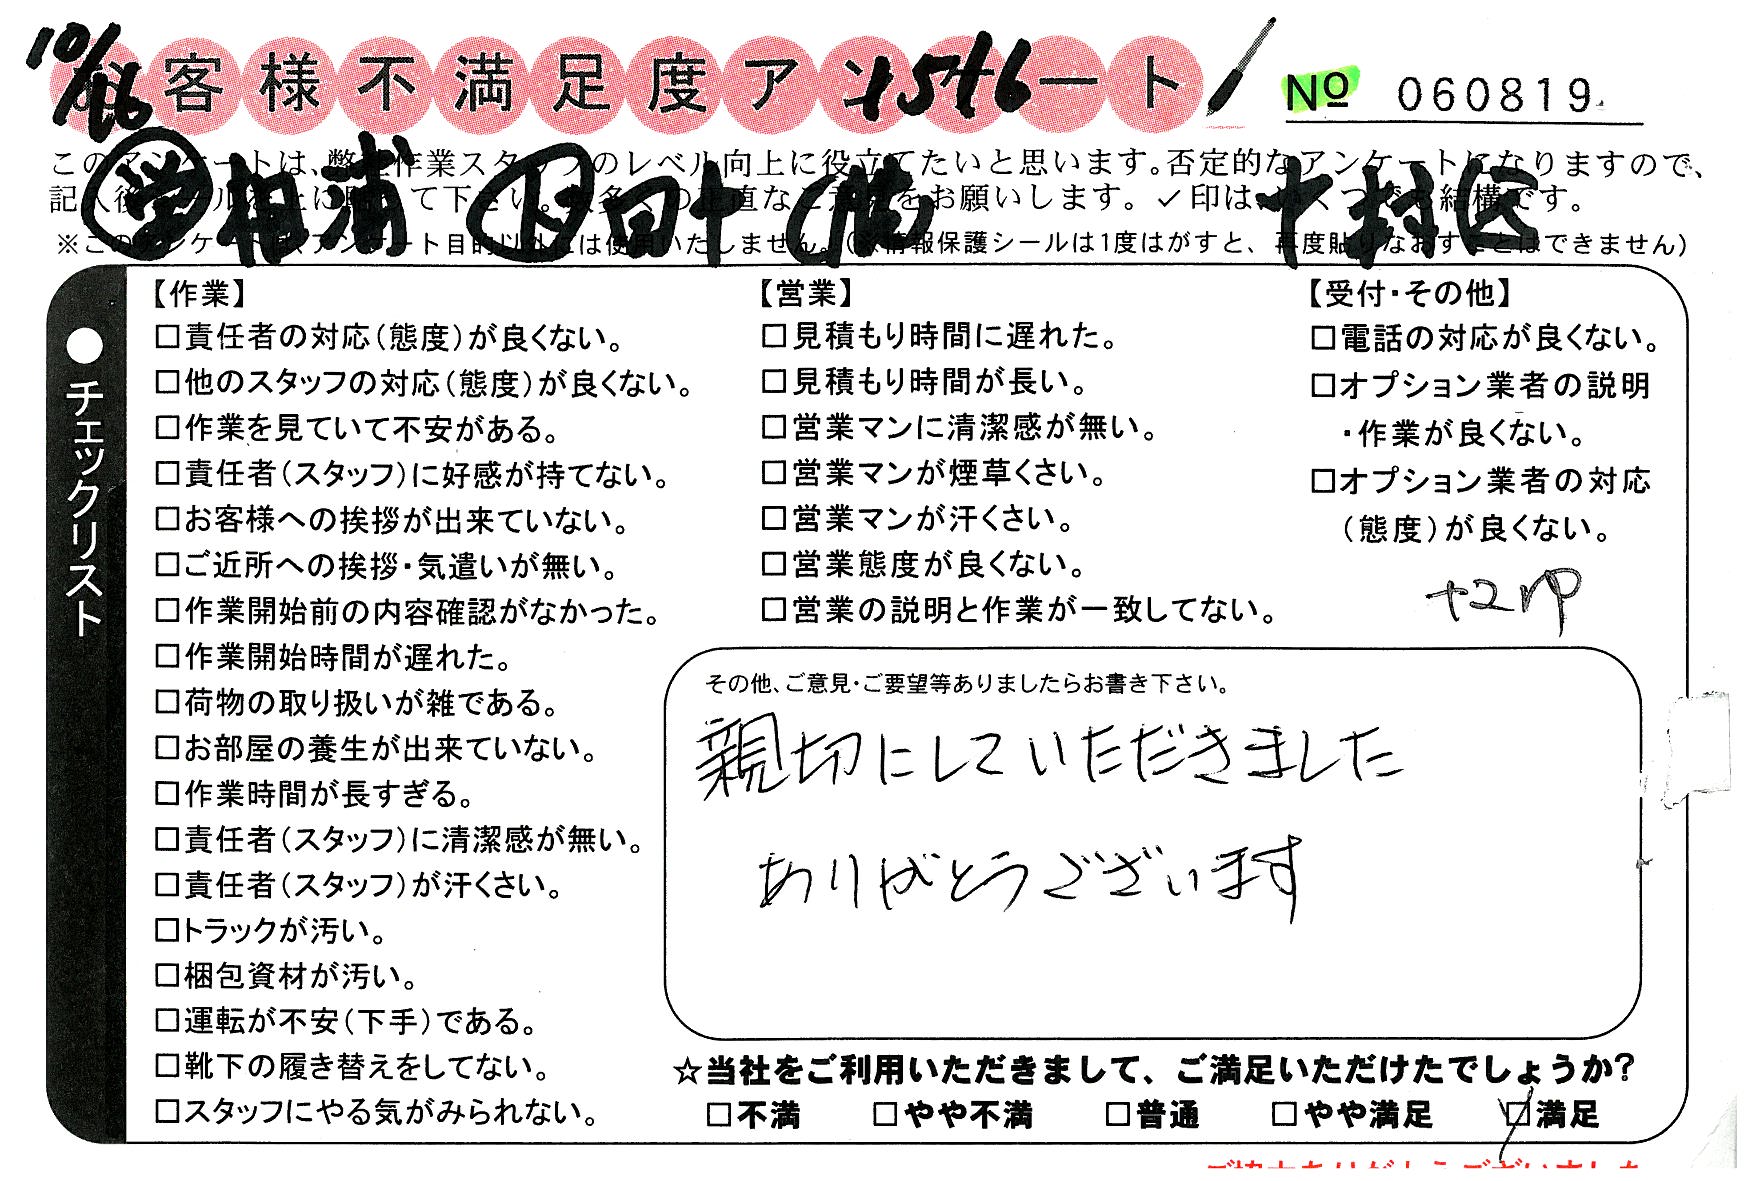 10/16
お客様不満足度アンケート
1546
No 060819
このアンケートは、弊社作業スタッフのレベル向上に役立てたいと思います。否定的なアンケートになりますので、
記入後シールを上に貼って下さい。数多くの正直なご意見をお願いします。✓印は、いくつでも結構です。
※このアンケートは、アンケート目的以外には使用いたしません。(※情報保護シールは1度はがすと、再度貼りなおすことはできません)
相浦
●チェックリスト
【作業】
□責任者の対応(態度)が良くない。
□他のスタッフの対応(態度)が良くない。
□作業を見ていて不安がある。
□責任者(スタッフ)に好感が持てない。
□お客様への挨拶が出来ていない。
□ご近所への挨拶・気遣いが無い。
□作業開始前の内容確認がなかった。
□作業開始時間が遅れた。
□荷物の取り扱いが雑である。
□お部屋の養生が出来ていない。
□作業時間が長すぎる。
□責任者(スタッフ)に清潔感が無い。
□責任者(スタッフ)が汗くさい。
□トラックが汚い。
□梱包資材が汚い。
□運転が不安(下手)である。
□靴下の履き替えをしてない。
□スタッフにやる気がみられない。
【営業】
□見積もり時間に遅れた。
□見積もり時間が長い。
□営業マンに清潔感が無い。
□営業マンが煙草くさい。
□営業マンが汗くさい。
□営業態度が良くない。
□営業の説明と作業が一致してない。
【受付・その他】
□電話の対応が良くない。
□オプション業者の説明
・作業が良くない。
□オプション業者の対応
(態度)が良くない。
その他、ご意見・ご要望等ありましたらお書き下さい。
親切にしていただきました
ありがとうございます
☆当社をご利用いただきまして、ご満足いただけたでしょうか?
□不満 □やや不満 □普通 □やや満足 ☑満足
ご協力ありがとうございました